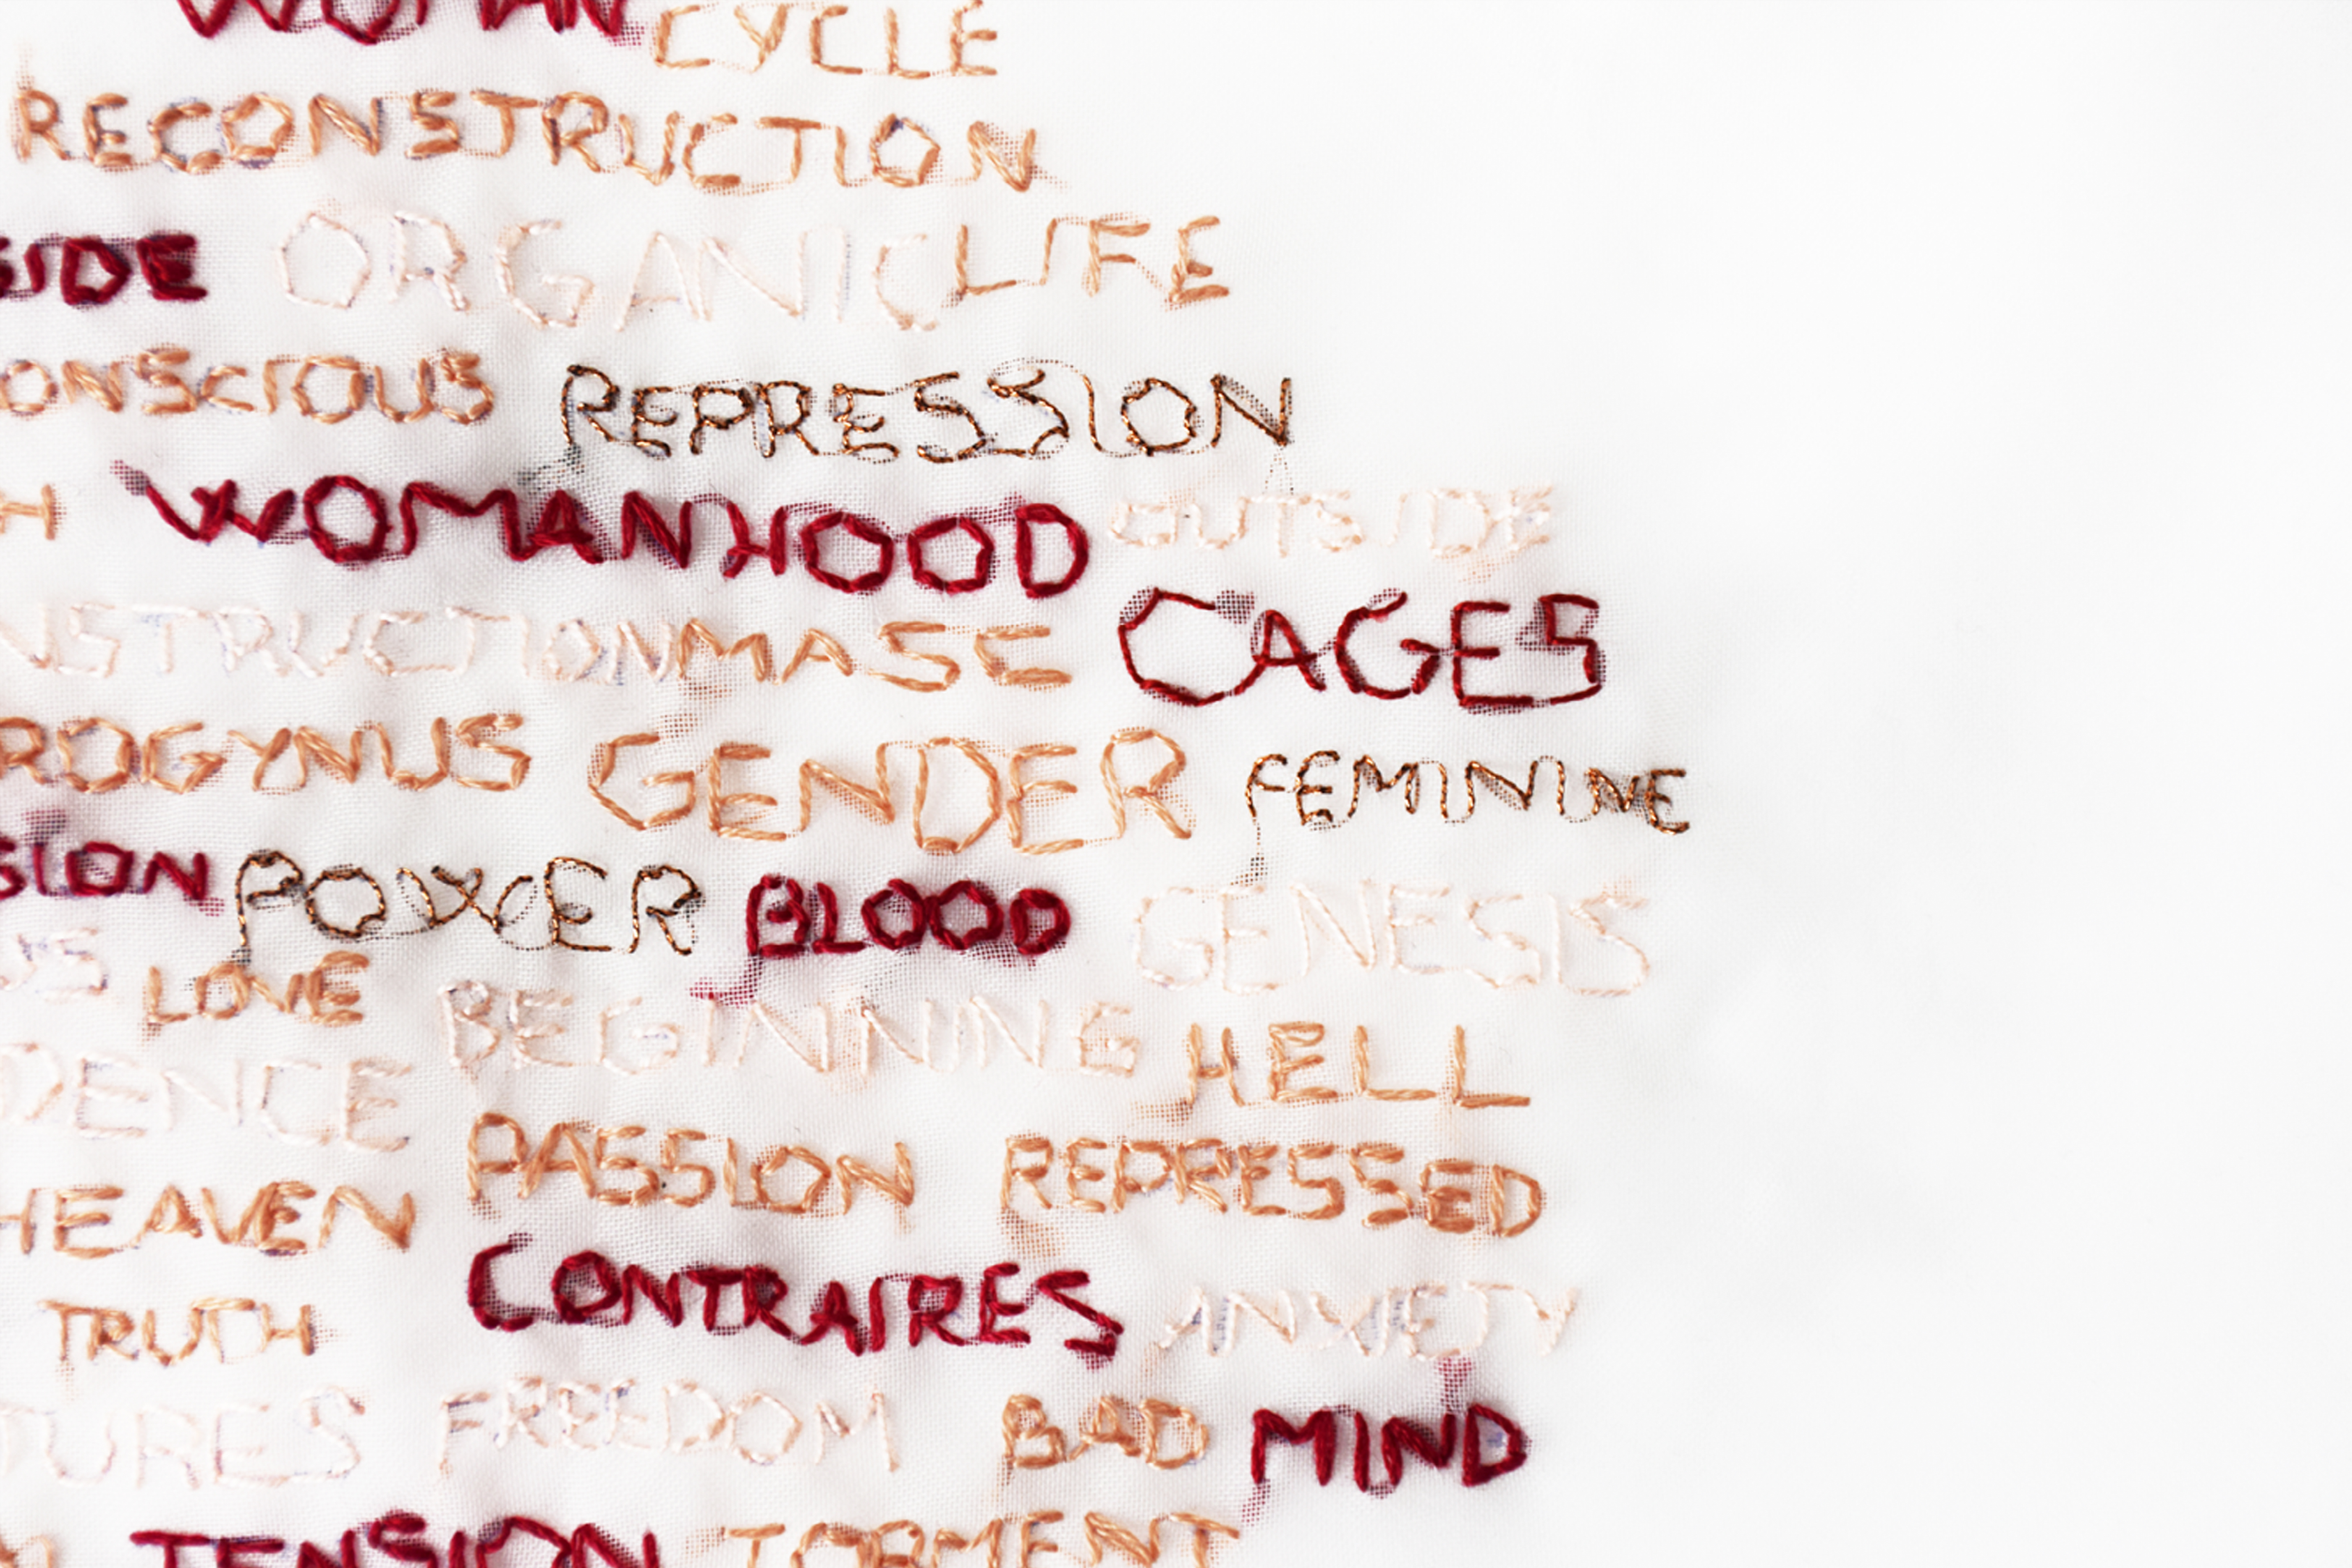 WOMAN CYCLE
RECONSTRUCTION
SIDE ORGANIC LIFE
ONSCIOUS REPRESSION
H WOMANHOOD OUTSIDE
NSTRUCTION MASE CAGES
ROGYNUS GENDER FEMININE
SION POWER BLOOD GENESIS
US LOVE BEGINNING HELL
DENCE PASSION REPRESSED
HEAVEN CONTRAIRES ANXIETY
TRUTH
TURES FREEDOM BAD MIND
TENSION TORMENT